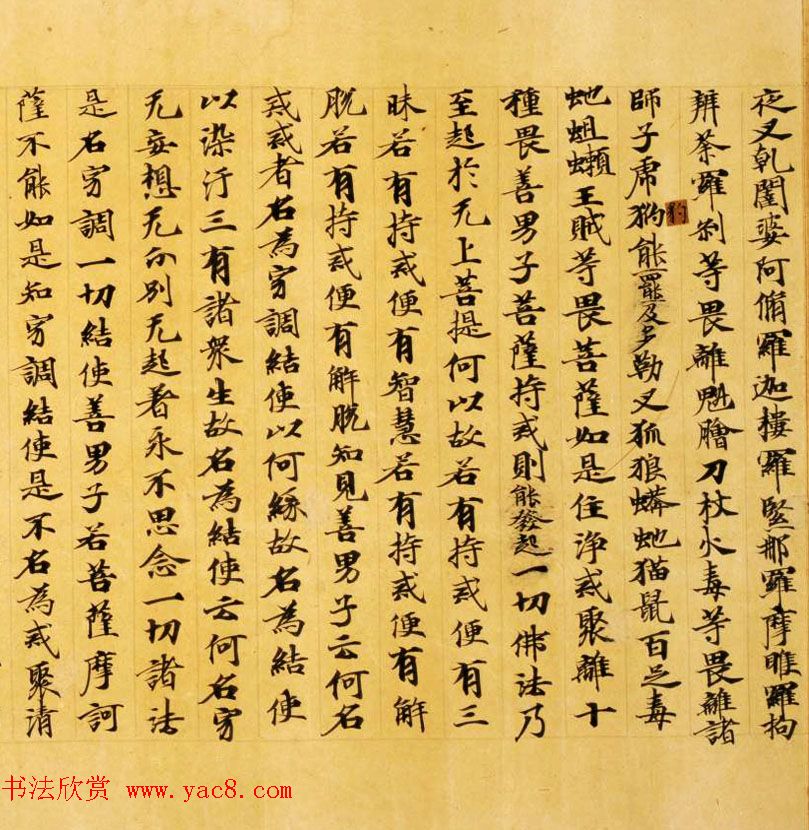 夜叉乹闥婆阿脩羅迦樓羅緊那羅摩睺羅拘
辨荼羅剎等畏離魁膾刀杖火毒等畏離諸
師子虎豹能羆及多勒叉狐狼蟒虵猫鼠百足毒
豹
虵蛆蠍王賊等畏菩薩如是住浄戒聚離十
種畏善男子菩薩持戒則能發起一切佛法乃
至起於无上菩提何以故若有持戒便有三
昧若有持戒便有智慧若有持戒便有解
脫若有持戒便有解脫知見善男子云何名
戒戒者名為穷調結使以何緣故名為結使
以染汙三有諸衆生故名為結使云何名穷
无妄想无分別无起着永不思念一切諸法
是名穷調一切結使善男子若菩薩摩訶
薩不能如是知穷調結使是不名為戒聚清
书法欣赏 www.yac8.com